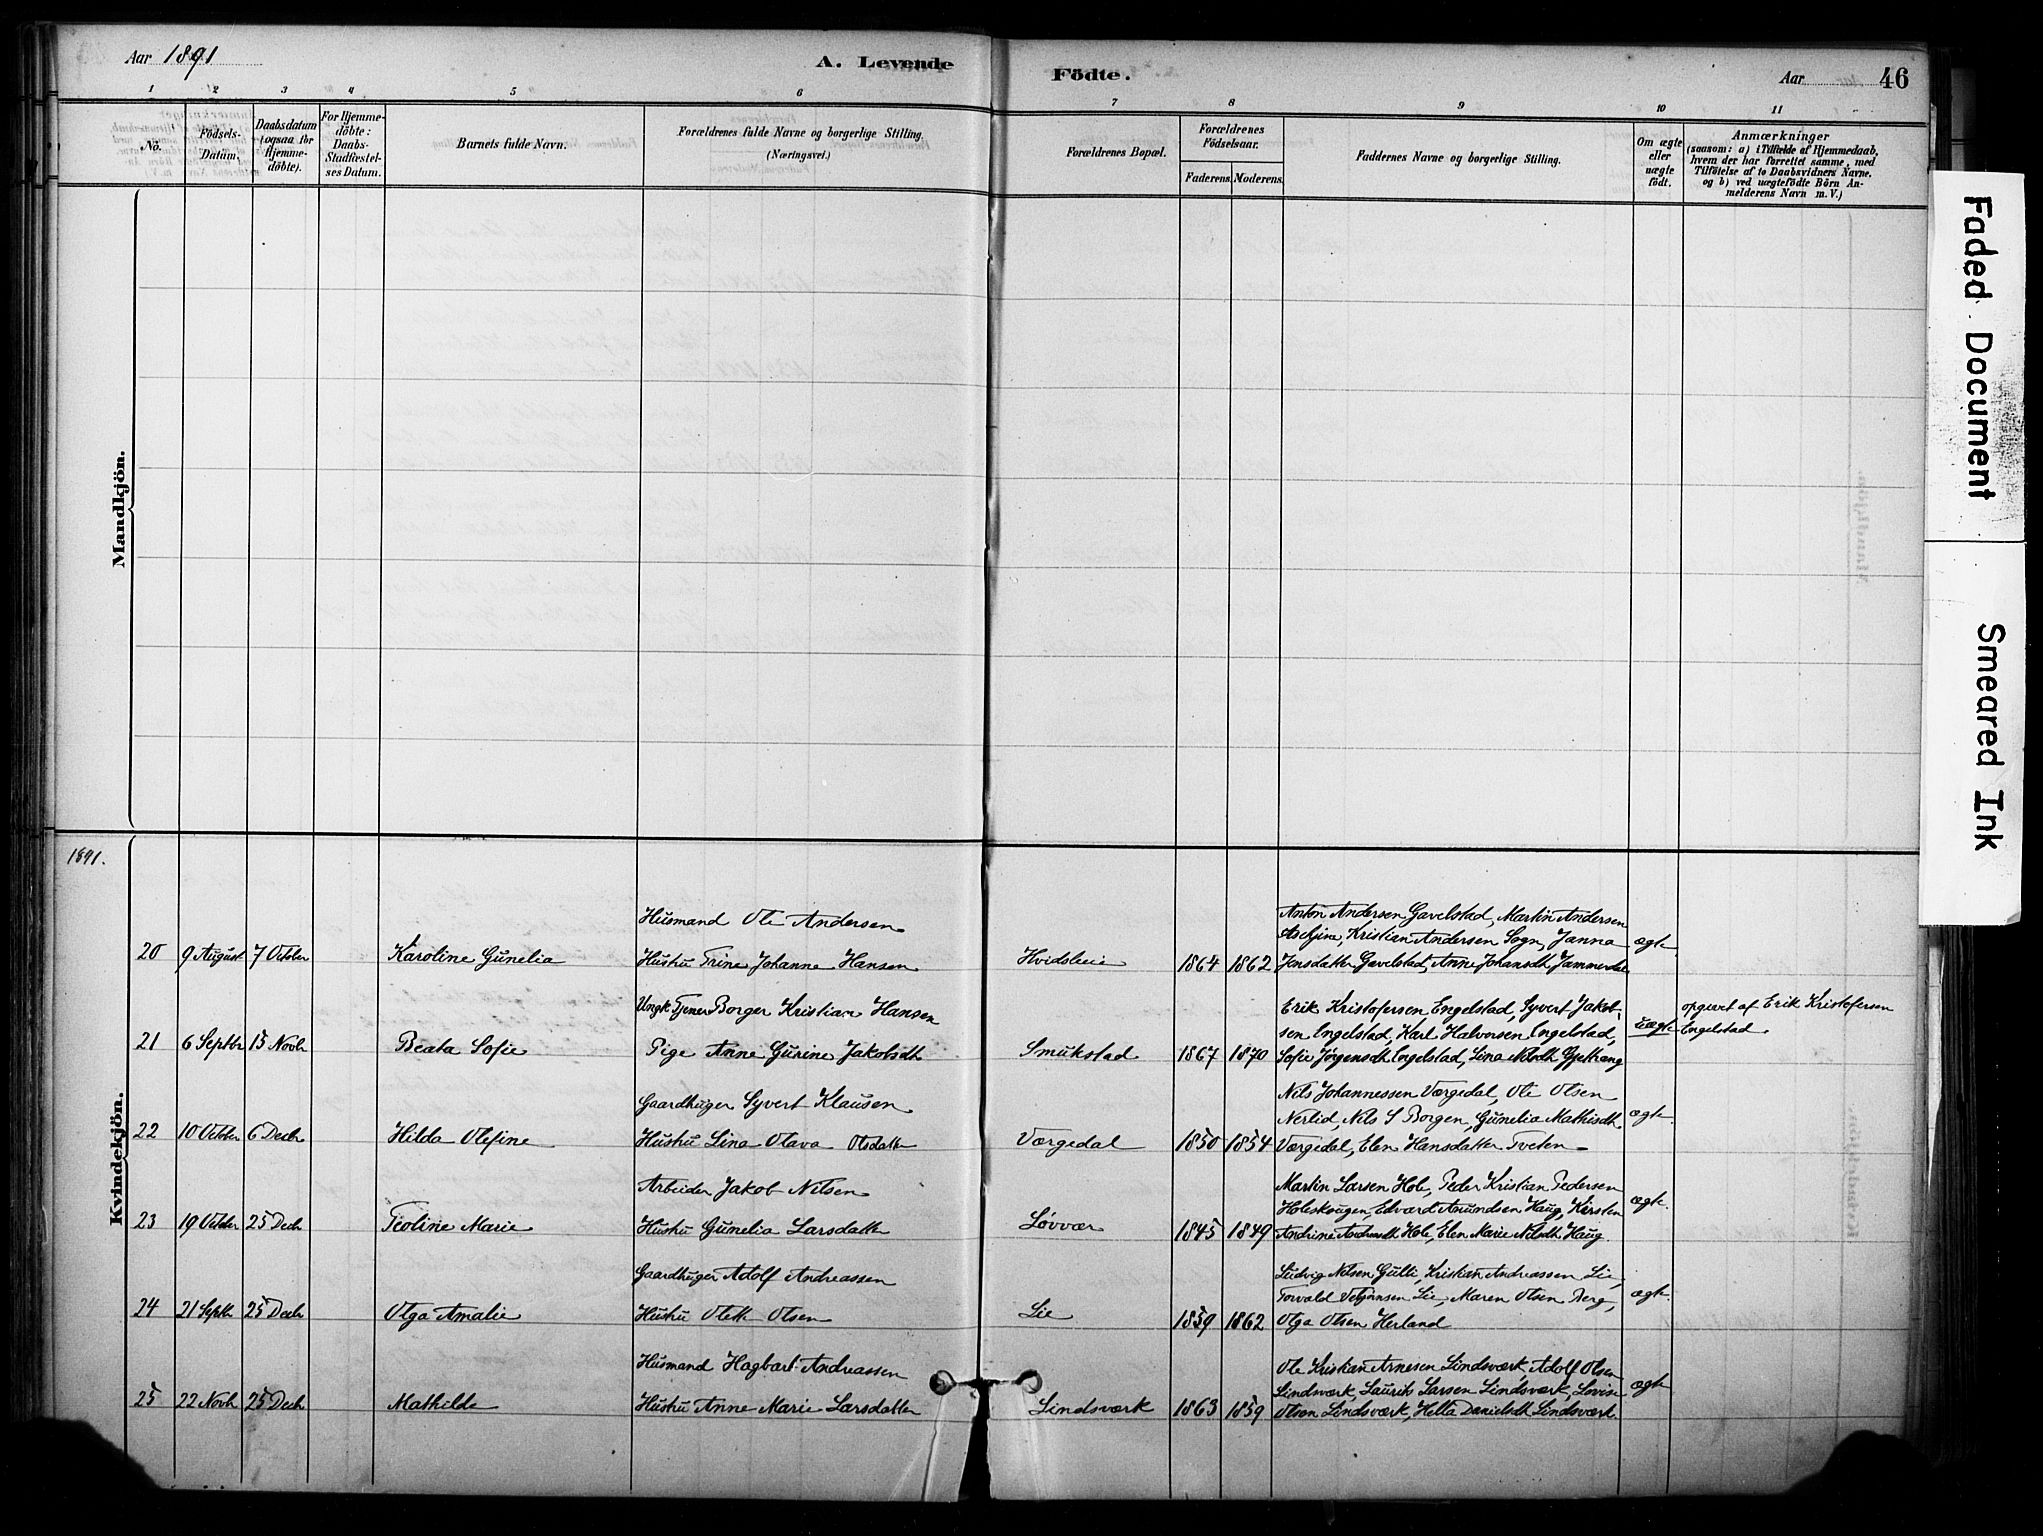 Aar 1891
A. Levende
Födte.
Aar 46
1 2 3 4 5 6 7 8 9 10 11
No.
Födsels-
Datum.
Daabsdatum
(ogsaa for
Hjemme-
döbte).
For Hjemme-
döbte:
Daabs-
Stadfæstel-
ses Datum.
Barnets fulde Navn.
Forældrenes fulde Navne og borgerlige Stilling.
(Næringsvei.)
Forældrenes Bopæl.
Forældrenes
Födselsaar.
Faderens. Moderens.
Faddernes Navne og borgerlige Stilling.
Om ægte
eller
uægte
födt.
Anmærkninger
(saasom: a) i Tilfælde af Hjemmedaab,
hvem der har forrettet samme, med
Tilföielse af to Daabsvidners Navne.
og b) ved uægtefödte Börn An-
melderens Navn m. V.)
Mandkjön.
Kvindekjön.
1891.
20 9 August 7 October Karoline Gunelia
Husmand Ole Andersen
Hustru Trine Johanne Hansen
Hvidsteie 1864 1862
Anton Andersen Gavelstad, Martin Andersen
Kristian Andersen Sogn, Janna
Jensdatter Gavelstad, Anne Johansdt
ægte
21 6 Septbr 15 Novbr Beata Sofie
Ungk Tjener Borger Kristian Hansen
Pige Anne Gurine Jakobsdt
Smukstad 1867 1870
Erik Kristofersen Engelstad, Syvert Jakob-
sen Engelstad, Karl Halvorsen Engelstad,
Sofie Jørgensdt Engelstad, Lina Nilsdt
uægte
opgivet af Erik Kristofersen
Engelstad.
22 10 October 6 Decbr Hilda Olefine
Gaardbruger Syvert Klausen
Hustru Lina Olava Olsdatter
Værgedal 1850 1854
Nils Johannessen Værgedal, Ole Olsen
Nerlid, Nils S Borgen, Gunelia Mathisdt
Værgedal, Elen Hansdatter Tveten
ægte
23 19 October 25 Decbr Teoline Marie
Arbeider Jakob Nilsen
Hustru Gunelia Larsdatter
Løvvær 1845 1849
Martin Larsen Hole, Peder Kristian Pedersen
Holeskougen, Edvard Amundsen Haug, Kirsten
Andrine Hole, Elen Marie Nilsdt Haug.
ægte.
24 21 Septbr 25 Decbr Olga Amalie
Gaardbruger Adolf Andreassen
Hustru Olette Olsen
Lie 1859 1862
Ludvig Nilsen Gulli, Kristian Andreassen Lie,
Torvald Lie, Maren Olsen Berg,
Olga Olsen Herland
ægte.
25 22 Novbr 25 Decbr Mathilde
Husmand Hagbart Andreassen
Hustru Anne Marie Larsdatter
Lindsværk 1863 1859
Ole Kristian Arnesen Lindsværk, Adolf Olsen
Lindsværk, Laurits Larsen Lindsværk, Lovise
Olsen Lindsværk, Hella Danielsdt Lindsværk.
ægte
Faded Document
Smeared Ink